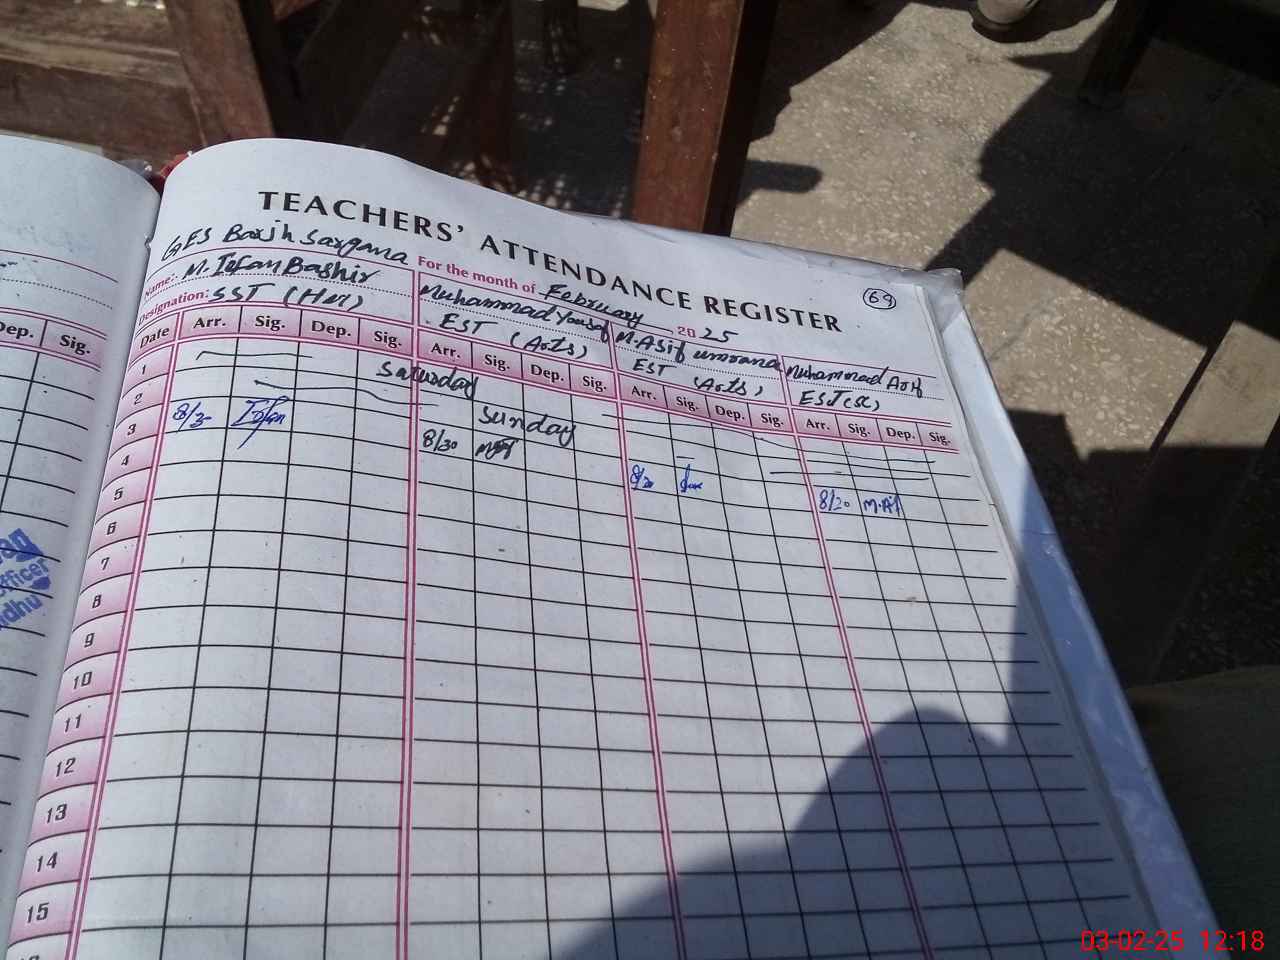 TEACHERS' ATTENDANCE REGISTER
69
GES Barjh Sargana
For the month of February 2025
Name: M. Irfan Bashir
Muhammad Yousaf
M. Asif
Muhammad Arif
Designation: SST (HM)
EST (Arts)
EST (Arts)
EST (SC)
Date Arr. Sig. Dep. Sig. Arr. Sig. Dep. Sig. Arr. Sig. Dep. Sig. Arr. Sig. Dep. Sig.
Dep. Sig.
1 Saturday
2 Sunday
3 8/30 Irfan 8/30 8/30 8/30
4
5
6
7
8
9
10
11
12
13
14
15
Officer
03-02-25 12:18